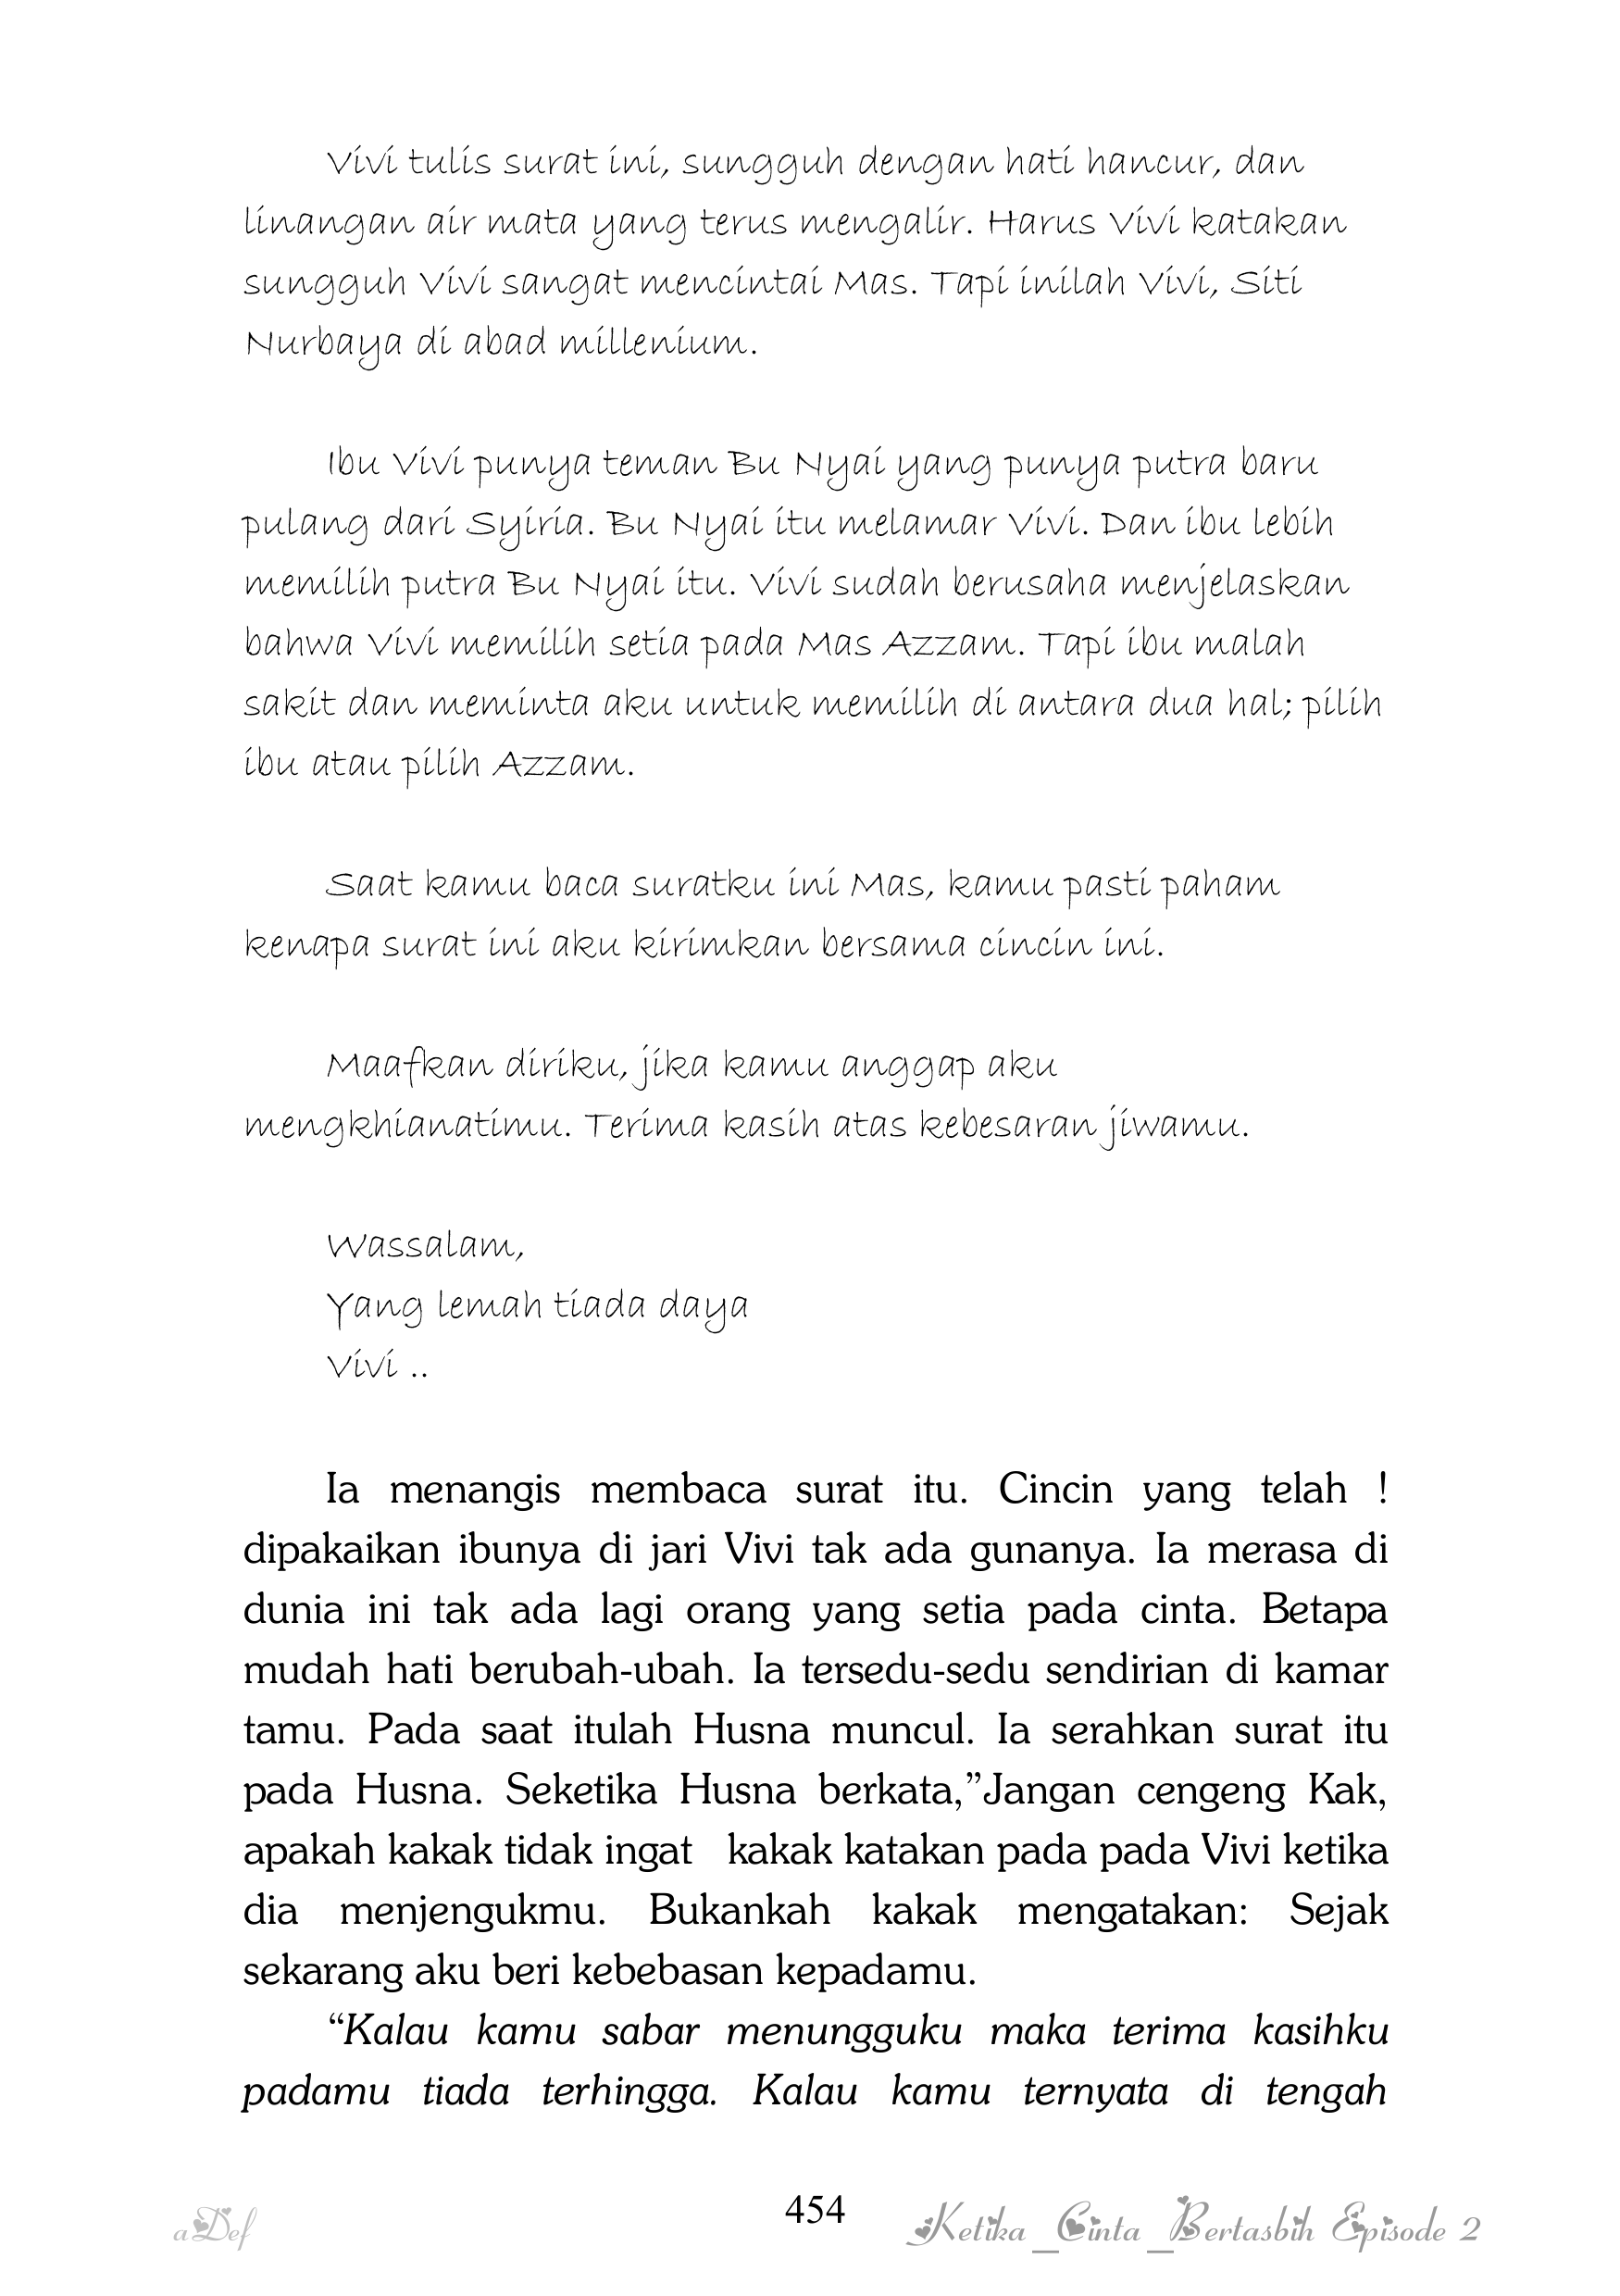 Vivi tulis surat ini, sungguh dengan hati hancur, dan
linangan air mata yang terus mengalir. Harus Vivi katakan
sungguh Vivi sangat mencintai Mas. Tapi inilah Vivi, Siti
Nurbaya di abad millenium.
Ibu Vivi punya teman Bu Nyai yang punya putra baru
pulang dari Syiria. Bu Nyai itu melamar Vivi. Dan ibu lebih
memilih putra Bu Nyai itu. Vivi sudah berusaha menjelaskan
bahwa Vivi memilih setia pada Mas Azzam. Tapi ibu malah
sakit dan meminta aku untuk memilih di antara dua hal; pilih
ibu atau pilih Azzam.
Saat kamu baca suratku ini Mas, kamu pasti paham
kenapa surat ini aku kirimkan bersama cincin ini.
Maafkan diriku, jika kamu anggap aku
mengkhianatimu. Terima kasih atas kebesaran jiwamu.
Wassalam,
Yang lemah tiada daya
Vivi ..
Ia menangis membaca surat itu. Cincin yang telah !
dipakaikan ibunya di jari Vivi tak ada gunanya. Ia merasa di
dunia ini tak ada lagi orang yang setia pada cinta. Betapa
mudah hati berubah-ubah. Ia tersedu-sedu sendirian di kamar
tamu. Pada saat itulah Husna muncul. Ia serahkan surat itu
pada Husna. Seketika Husna berkata,”Jangan cengeng Kak,
apakah kakak tidak ingat kakak katakan pada pada Vivi ketika
dia menjengukmu. Bukankah kakak mengatakan: Sejak
sekarang aku beri kebebasan kepadamu.
“Kalau kamu sabar menungguku maka terima kasihku
padamu tiada terhingga. Kalau kamu ternyata di tengah
aDef 454 Ketika_Cinta_Bertasbih Episode 2